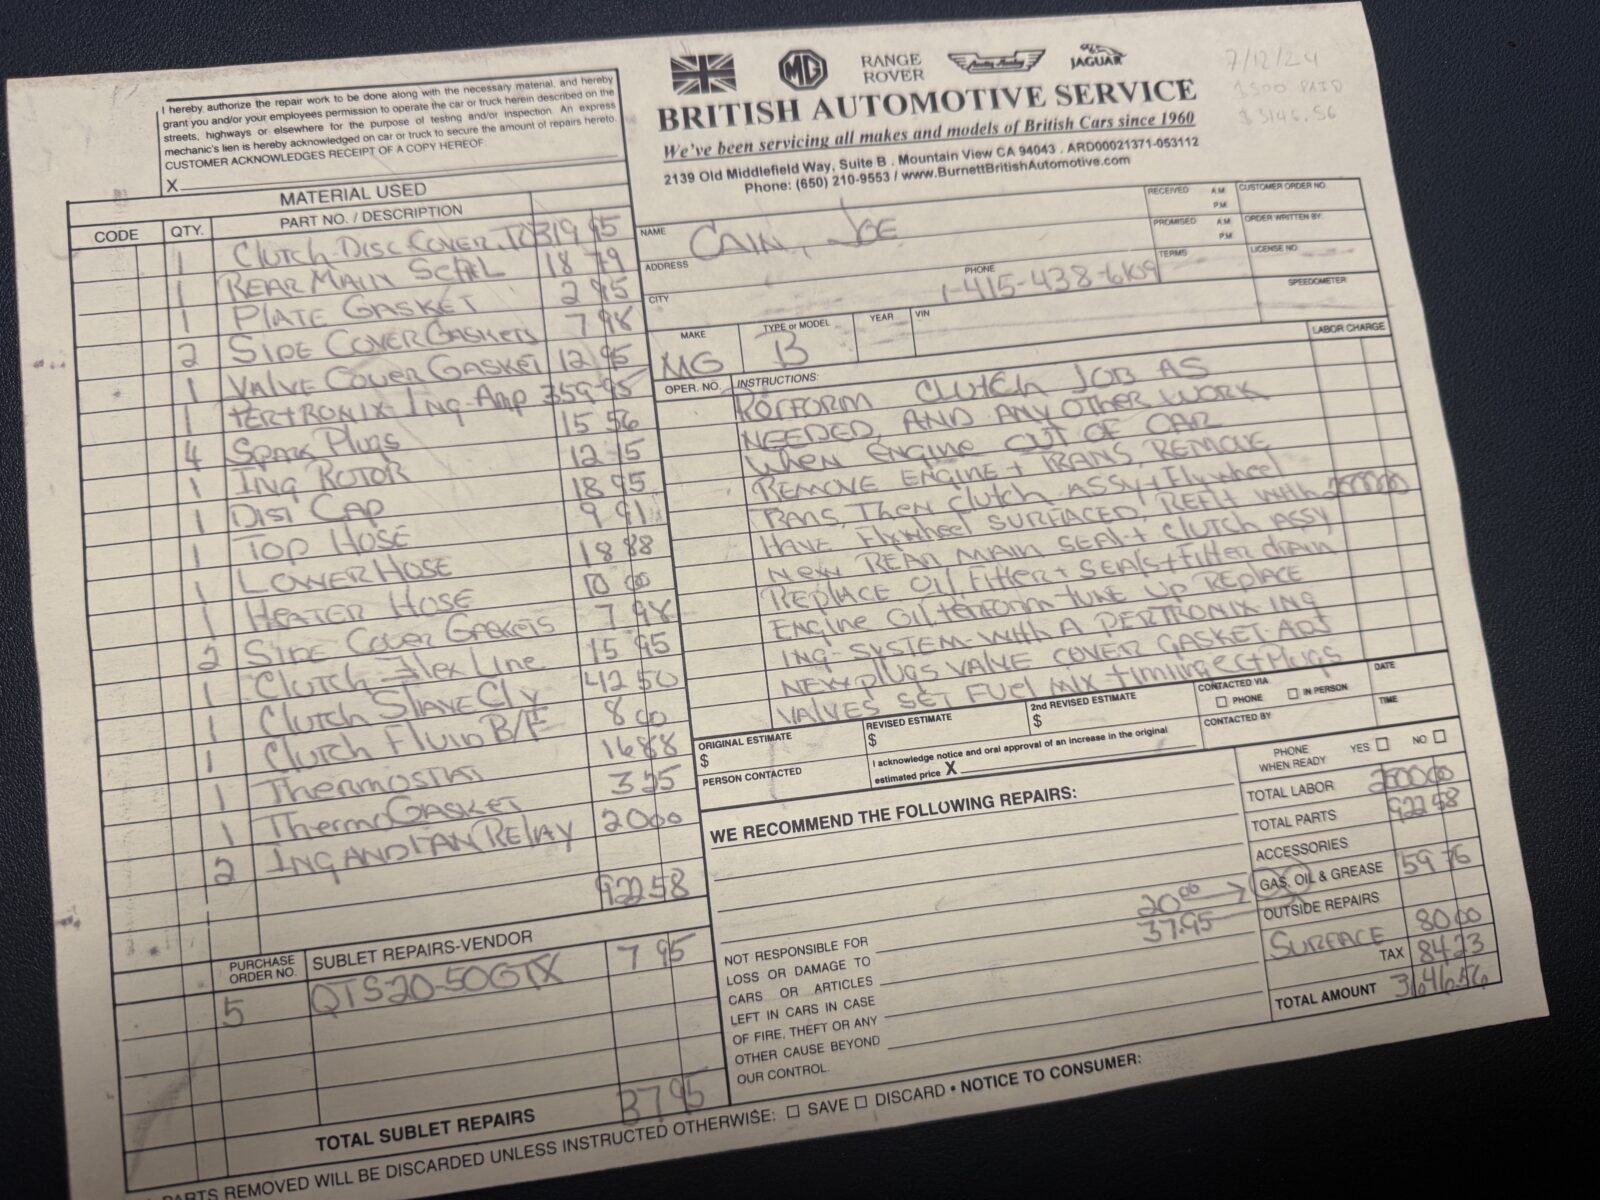 I hereby authorize the repair work to be done along with the necessary material, and hereby
grant you and/or your employees permission to operate the car or truck herein described on the
streets, highways or elsewhere for the purpose of testing and/or inspection. An express
mechanic's lien is hereby acknowledged on car or truck to secure the amount of repairs hereto.
CUSTOMER ACKNOWLEDGES RECEIPT OF A COPY HEREOF
X
MG
RANGE
ROVER
JAGUAR
7/12/24
$ 3146.56
BRITISH AUTOMOTIVE SERVICE
We've been servicing all makes and models of British Cars since 1960
2139 Old Middlefield Way, Suite B . Mountain View CA 94043 . ARD00021371-053112
Phone: (650) 210-9553 / www.BurnettBritishAutomotive.com
MATERIAL USED
CODE QTY. PART NO. / DESCRIPTION
1 Clutch-Disc Cover, TO 319 95
1 REAR MAIN SEAL 18 79
1 PLATE GASKET 2 95
2 SIDE COVER GASKETS 7 98
1 VALVE COVER GASKET 12 95
1 PERTRONIX-Ing-Amp 359-95
4 Spark Plugs 15 56
1 ING ROTOR 12-15
1 DIST CAP 18 95
1 TOP HOSE 9 91
1 LOWER HOSE 18 88
1 HEATER HOSE 10 00
2 SIDE COVER GASKETS 7 98
1 Clutch Flex Line 15 95
1 Clutch Slave Cly 42 50
1 Clutch Fluid B/F 8 00
1 Thermostat 16 88
1 Thermo GASKET 3 25
2 ING AND FAN RELAY 20 00
922 58
PURCHASE ORDER NO. SUBLET REPAIRS-VENDOR
5 QTS 20-50 GTX 7 95
TOTAL SUBLET REPAIRS 37 95
PARTS REMOVED WILL BE DISCARDED UNLESS INSTRUCTED OTHERWISE: SAVE DISCARD • NOTICE TO CONSUMER:
NAME CAIN, JOE
ADDRESS
CITY PHONE 1-415-438-6109
RECEIVED A.M. P.M.
PROMISED A.M. P.M.
TERMS
CUSTOMER ORDER NO.
ORDER WRITTEN BY:
LICENSE NO.
SPEEDOMETER
MAKE TYPE or MODEL YEAR VIN
MG B
OPER. NO. INSTRUCTIONS: LABOR CHARGE
PERFORM CLUTCH JOB AS
NEEDED, AND ANY OTHER WORK
WHEN ENGINE OUT OF CAR
REMOVE ENGINE + TRANS, REMOVE
TRANS, THEN CLUTCH ASSY + Flywheel
HAVE Flywheel SURFACED, REFIT WITH 2000 00
NEW REAR MAIN SEAL + CLUTCH ASSY
REPLACE OIL, Filter + SEALS + Filter drain
ENGINE OIL. PERFORM TUNE UP REPLACE
ING-SYSTEM-WITH A PERTRONIX ING
NEW PLUGS VALVE COVER GASKET-ADJ
VALVES SET FUEL MIX + timing ect Plugs
ORIGINAL ESTIMATE $
REVISED ESTIMATE $
2nd REVISED ESTIMATE $
CONTACTED VIA PHONE IN PERSON
DATE
CONTACTED BY TIME
PERSON CONTACTED
I acknowledge notice and oral approval of an increase in the original
estimated price X
WE RECOMMEND THE FOLLOWING REPAIRS:
PHONE WHEN READY YES NO
TOTAL LABOR 2000 00
TOTAL PARTS 922 58
ACCESSORIES
20 00 GAS, OIL & GREASE 59 76
37.95 OUTSIDE REPAIRS
SURFACE 80 00
TAX 84 23
TOTAL AMOUNT 3146.56
NOT RESPONSIBLE FOR
LOSS OR DAMAGE TO
CARS OR ARTICLES
LEFT IN CARS IN CASE
OF FIRE, THEFT OR ANY
OTHER CAUSE BEYOND
OUR CONTROL.